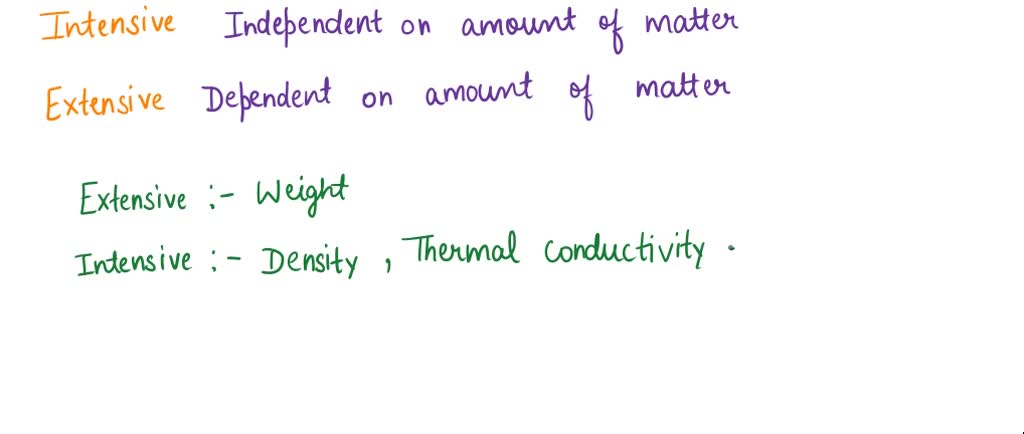 Intensive Independent on amount of matter
Extensive Dependent on amount of matter
Extensive :- Weight
Intensive :- Density , Thermal conductivity .